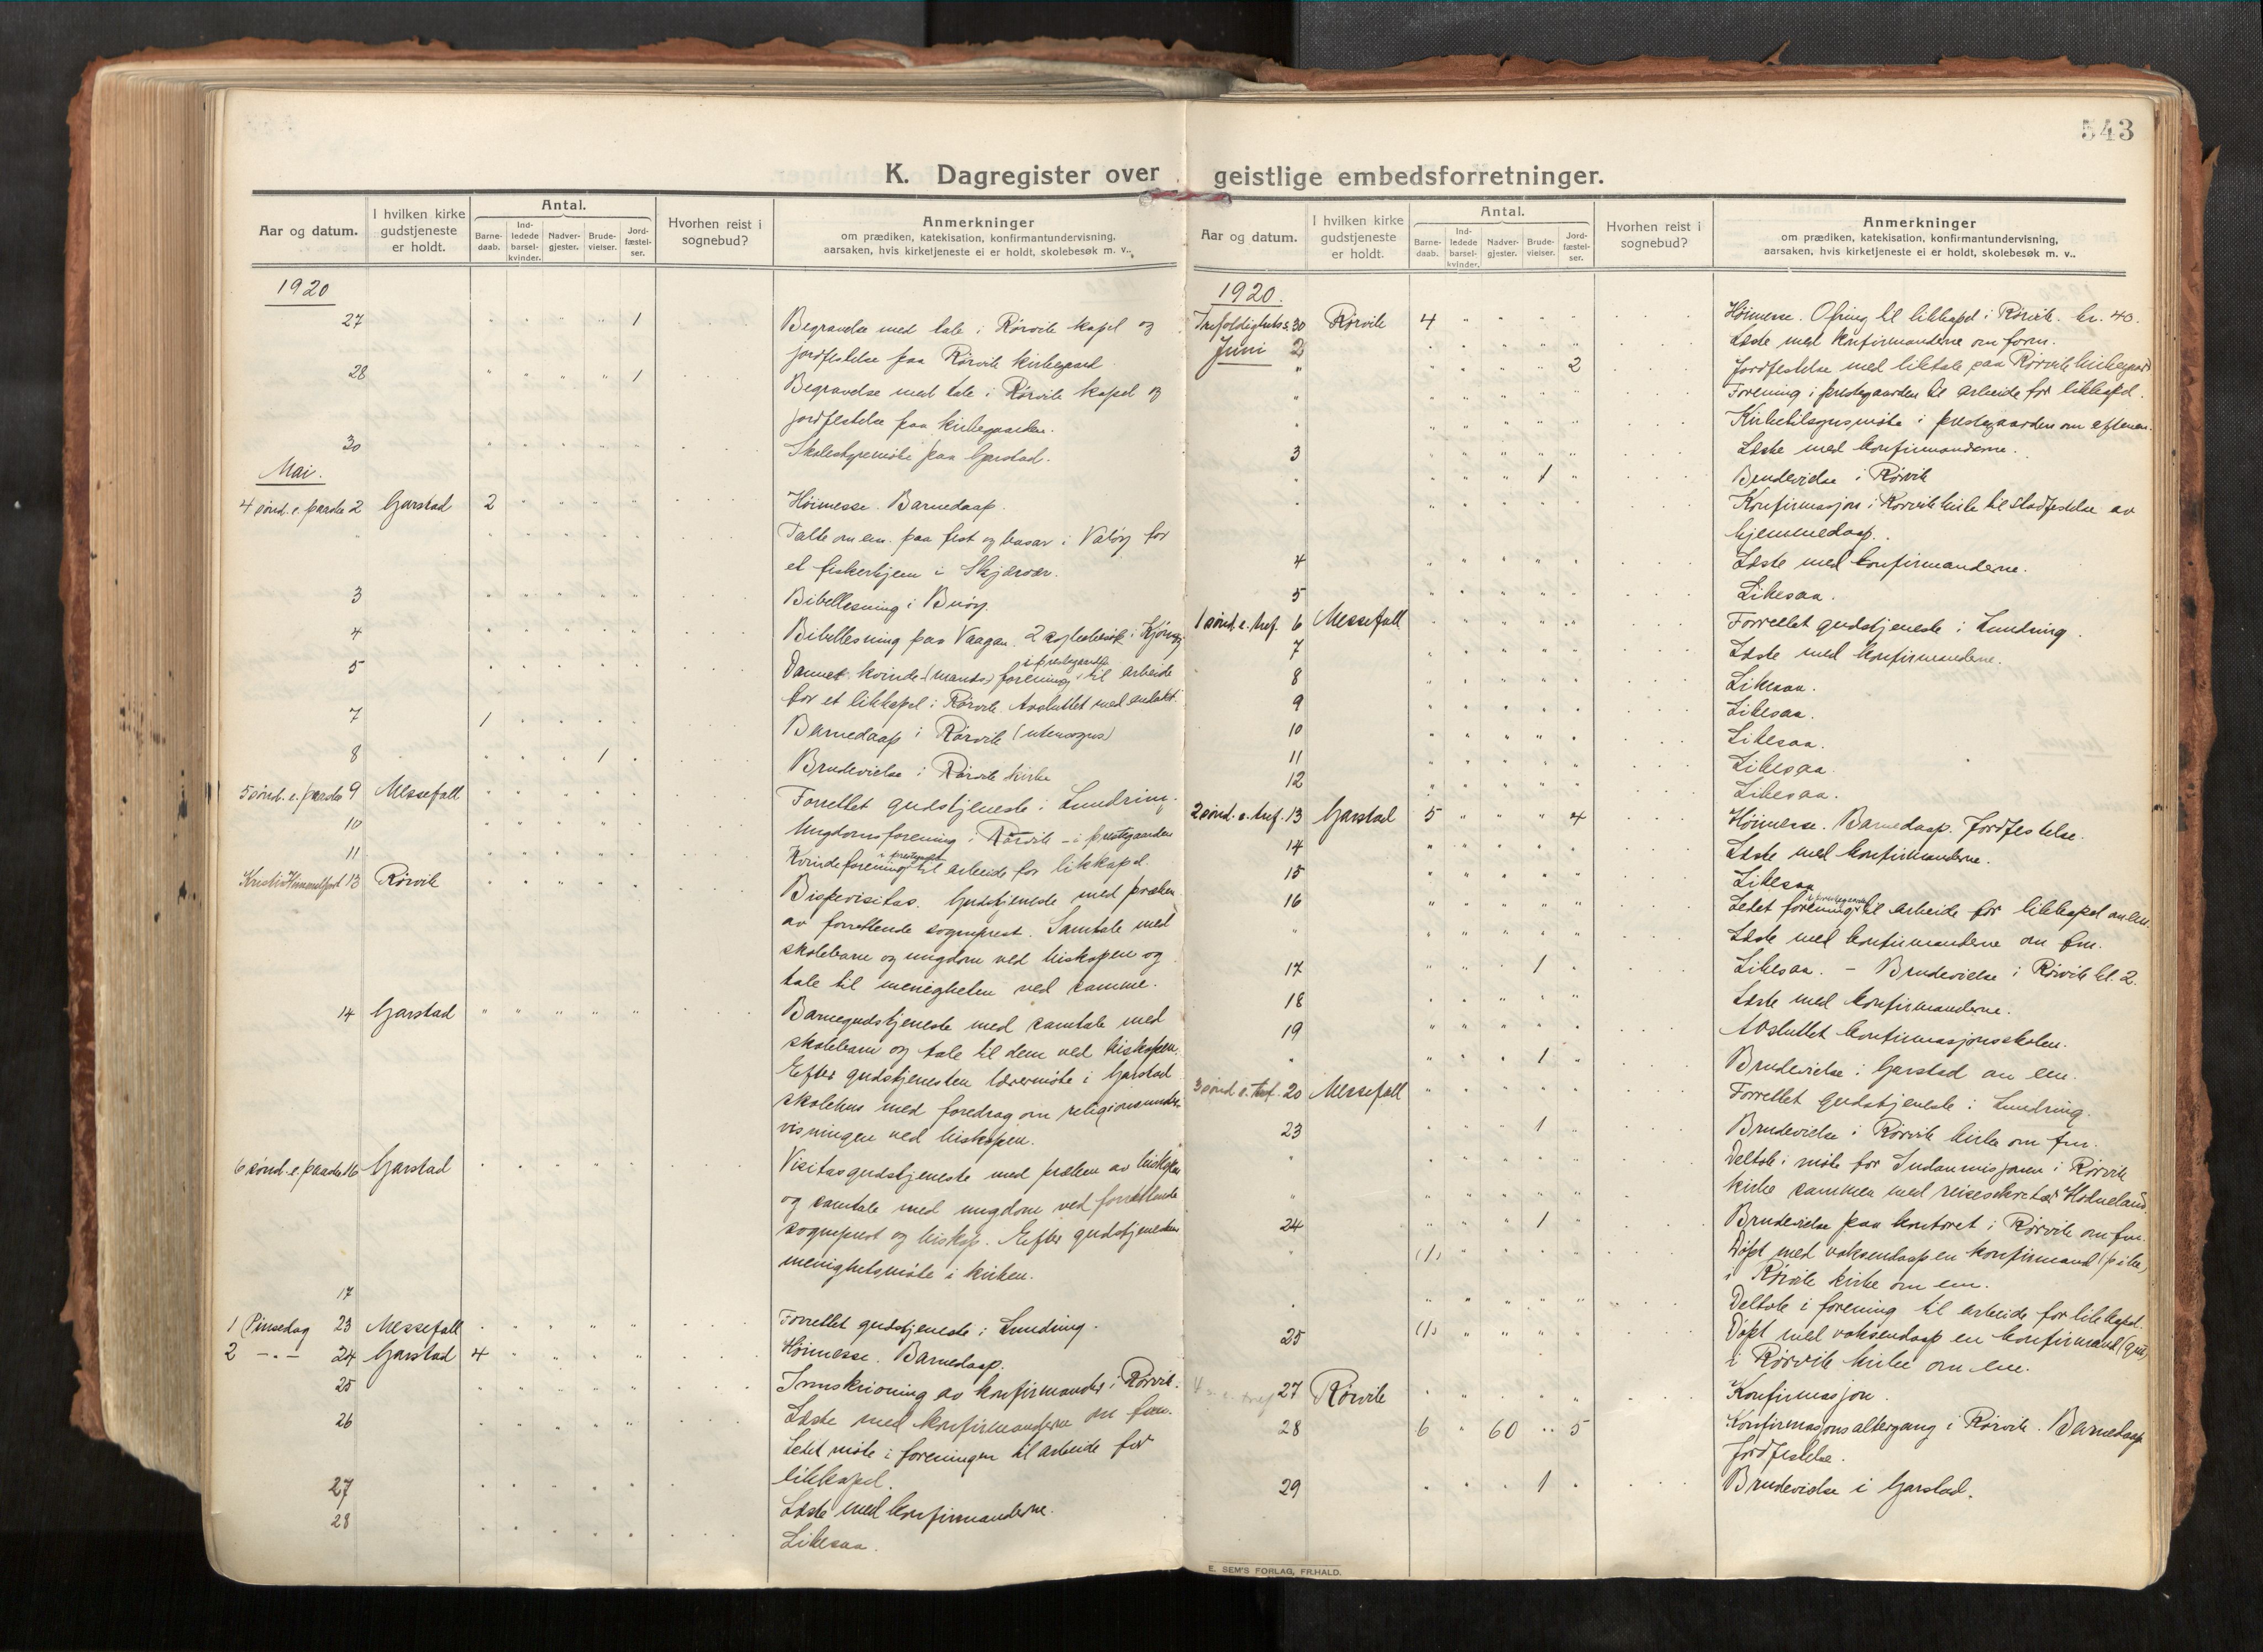 543
K. Dagregister over geistlige embedsforretninger.
Aar og datum.
I hvilken kirke gudstjeneste er holdt.
Antal.
Barne-daab.
Ind-ledede barsel-kvinder.
Nadver-gjester.
Brude-vielser.
Jord-fæstel-ser.
Hvorhen reist i sognebud?
Anmerkninger
om prædiken, katekisation, konfirmantundervisning,
aarsaken, hvis kirketjeneste ei er holdt, skolebesøk m. v..
1920
27 1 Begravelse med tale i Rørvik kapel og
jordfestelse paa Rørvik kirkegaard
28 1 Begravelse med tale i Rørvik kapel og
jordfestelse paa kirkegaarden.
30 Skolestyremøte paa Garstad.
Mai.
4 sønd. e. paaske 2 Garstad 2 Høimesse. Barnedaap.
Talte om em. paa fest og basar i Valøy for
et fiskerhjem i Skjærvær.
3 Bibellesning i Buøy.
4 Bibellesning paa Vaagan. 2 i
5 Dannet kvinde-(mands) forening i prestegaarden til arbeide
for et likkapel i Rørvik. Avsluttet med andakt.
7 1 Barnedaap i Rørvik (utensogns)
8 1 Brudevielse i Rørvik kirke
5 sønd. e. paaske 9 Messefall Forrettet gudstjeneste i Lundring.
10 Ungdomsforening i Rørvik - i prestegaarden
11 Kvindeforening i prestegaarden til arbeide for likkapel.
Kristi Himmelfart 13 Rørvik Bispevisitas. Gudstjeneste med præken
av forrettende sogneprest. Samtale med
skolebarn og ungdom ved biskopen og
tale til menigheten ved samme.
14 Garstad Barnegudstjeneste med samtale med
skolebarn og tale til dem ved biskopen.
Efter gudstjenesten lærermøte i Garstad
skolehus med foredrag om religionsunder-
visningen ved biskopen.
6 sønd. e. paaske 16 Garstad Visitasgudstjeneste med præken av biskopen
og samtale med ungdom ved forrettende
sogneprest og biskop. Efter gudstjenesten
menighetsmøte i kirken.
17
1 Pinsedag 23 Messefall Forrettet gudstjeneste i Lundring.
2 -"- 24 Garstad 4 Høimesse. Barnedaap.
25 Innskrivning av konfirmander i Rørvik.
26 Læste med konfirmanderne om fm.
Ledet møte i foreningen til arbeide for
likkapel.
27 Læste med konfirmanderne.
28 Likesaa.
Aar og datum.
I hvilken kirke gudstjeneste er holdt.
Antal.
Barne-daab.
Ind-ledede barsel-kvinder.
Nadver-gjester.
Brude-vielser.
Jord-fæstel-ser.
Hvorhen reist i sognebud?
Anmerkninger
om prædiken, katekisation, konfirmantundervisning,
aarsaken, hvis kirketjeneste ei er holdt, skolebesøk m. v..
1920.
Trefoldighets s. 30 Rørvik 4 Høimesse. Ofring til likkapel i Rørvik. kr. 40.
Juni 2 Læste med konfirmanderne om form.
" 2 Jordfestelse med liktale paa Rørvik kirkegaard
" Forening i prestegaarden til arbeide for likkapel.
" Kirketilsynsmøte i prestegaarden om efterm.
3 Læste med konfirmanderne.
" 1 Brudevielse i Rørvik
" Konfirmasjon i Rørvik kirke til stadfestelse av
hjemmedaap.
4 Læste med konfirmanderne.
5 Likesaa.
1 sønd. e. tref. 6 Messefall Forrettet gudstjeneste i Lundring.
7 Læste med konfirmanderne.
8 Likesaa.
9 Likesaa.
10 Likesaa.
11 Likesaa.
12 Likesaa.
2 sønd. e. tref. 13 Garstad 5 4 Høimesse. Barnedaap. Jordfestelse.
14 Læste med konfirmanderne.
15 Likesaa
16 Ledet forening i prestegaarden til arbeide for likkapel om em.
" Læste med konfirmanderne om fm.
17 1 Likesaa. - Brudevielse i Rørvik kl. 2.
18 Læste med konfirmanderne.
19 Avsluttet konfirmasjonsskolen.
" 1 Brudevielse i Garstad om em.
3 sønd. e. tref. 20 Messefall Forrettet gudstjeneste i Lundring.
23 1 Brudevielse i Rørvik kirke om fm.
" Deltok i møte for Indremisjonen i Rørvik
" kirke sammen med reisesekretær Hodneland.
24 1 Brudevielse paa kontoret i Rørvik om fm.
" (1) Døpt med voksendaap en konfirmand (pike)
i Rørvik kirke om em.
" Deltok i forening til arbeide for likkapel.
25 (1) Døpt med voksendaap en konfirmand (gut)
i Rørvik kirke om em.
4 s. e. tref 27 Rørvik Konfirmasjon.
28 6 60 5 Konfirmasjonsaltergang i Rørvik. Barnedaap
Jordfestelse.
29 1 Brudevielse i Garstad.
E. SEM'S FORLAG, FR.HALD.